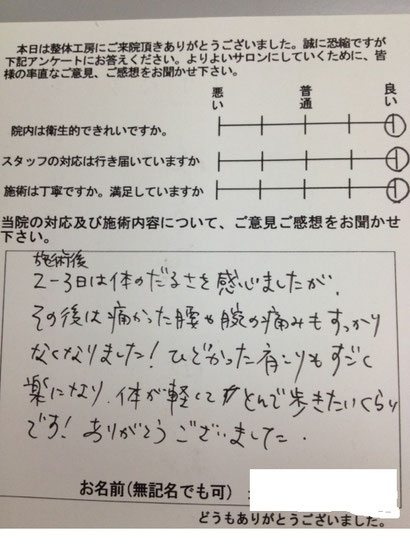 本日は整体工房にご来院頂きありがとうございました。誠に恐縮ですが
下記アンケートにお答えください。よりよいサロンにしていくために、皆
様の率直なご意見、ご感想をお聞かせ下さい。
悪い 普通 良い
院内は衛生的できれいですか。
スタッフの対応は行き届いていますか
施術は丁寧ですか。満足していますか
当院の対応及び施術内容について、ご意見ご感想をお聞かせ
下さい。
施術後
2-3日は体のだるさを感じましたが、
その後は痛かった腰や腕の痛みもすっかり
なくなりました!ひどかった肩こりもすごく
楽になり、体が軽くてとんで歩きたいくらい
です!ありがとうございました。
お名前(無記名でも可):
どうもありがとうございました。